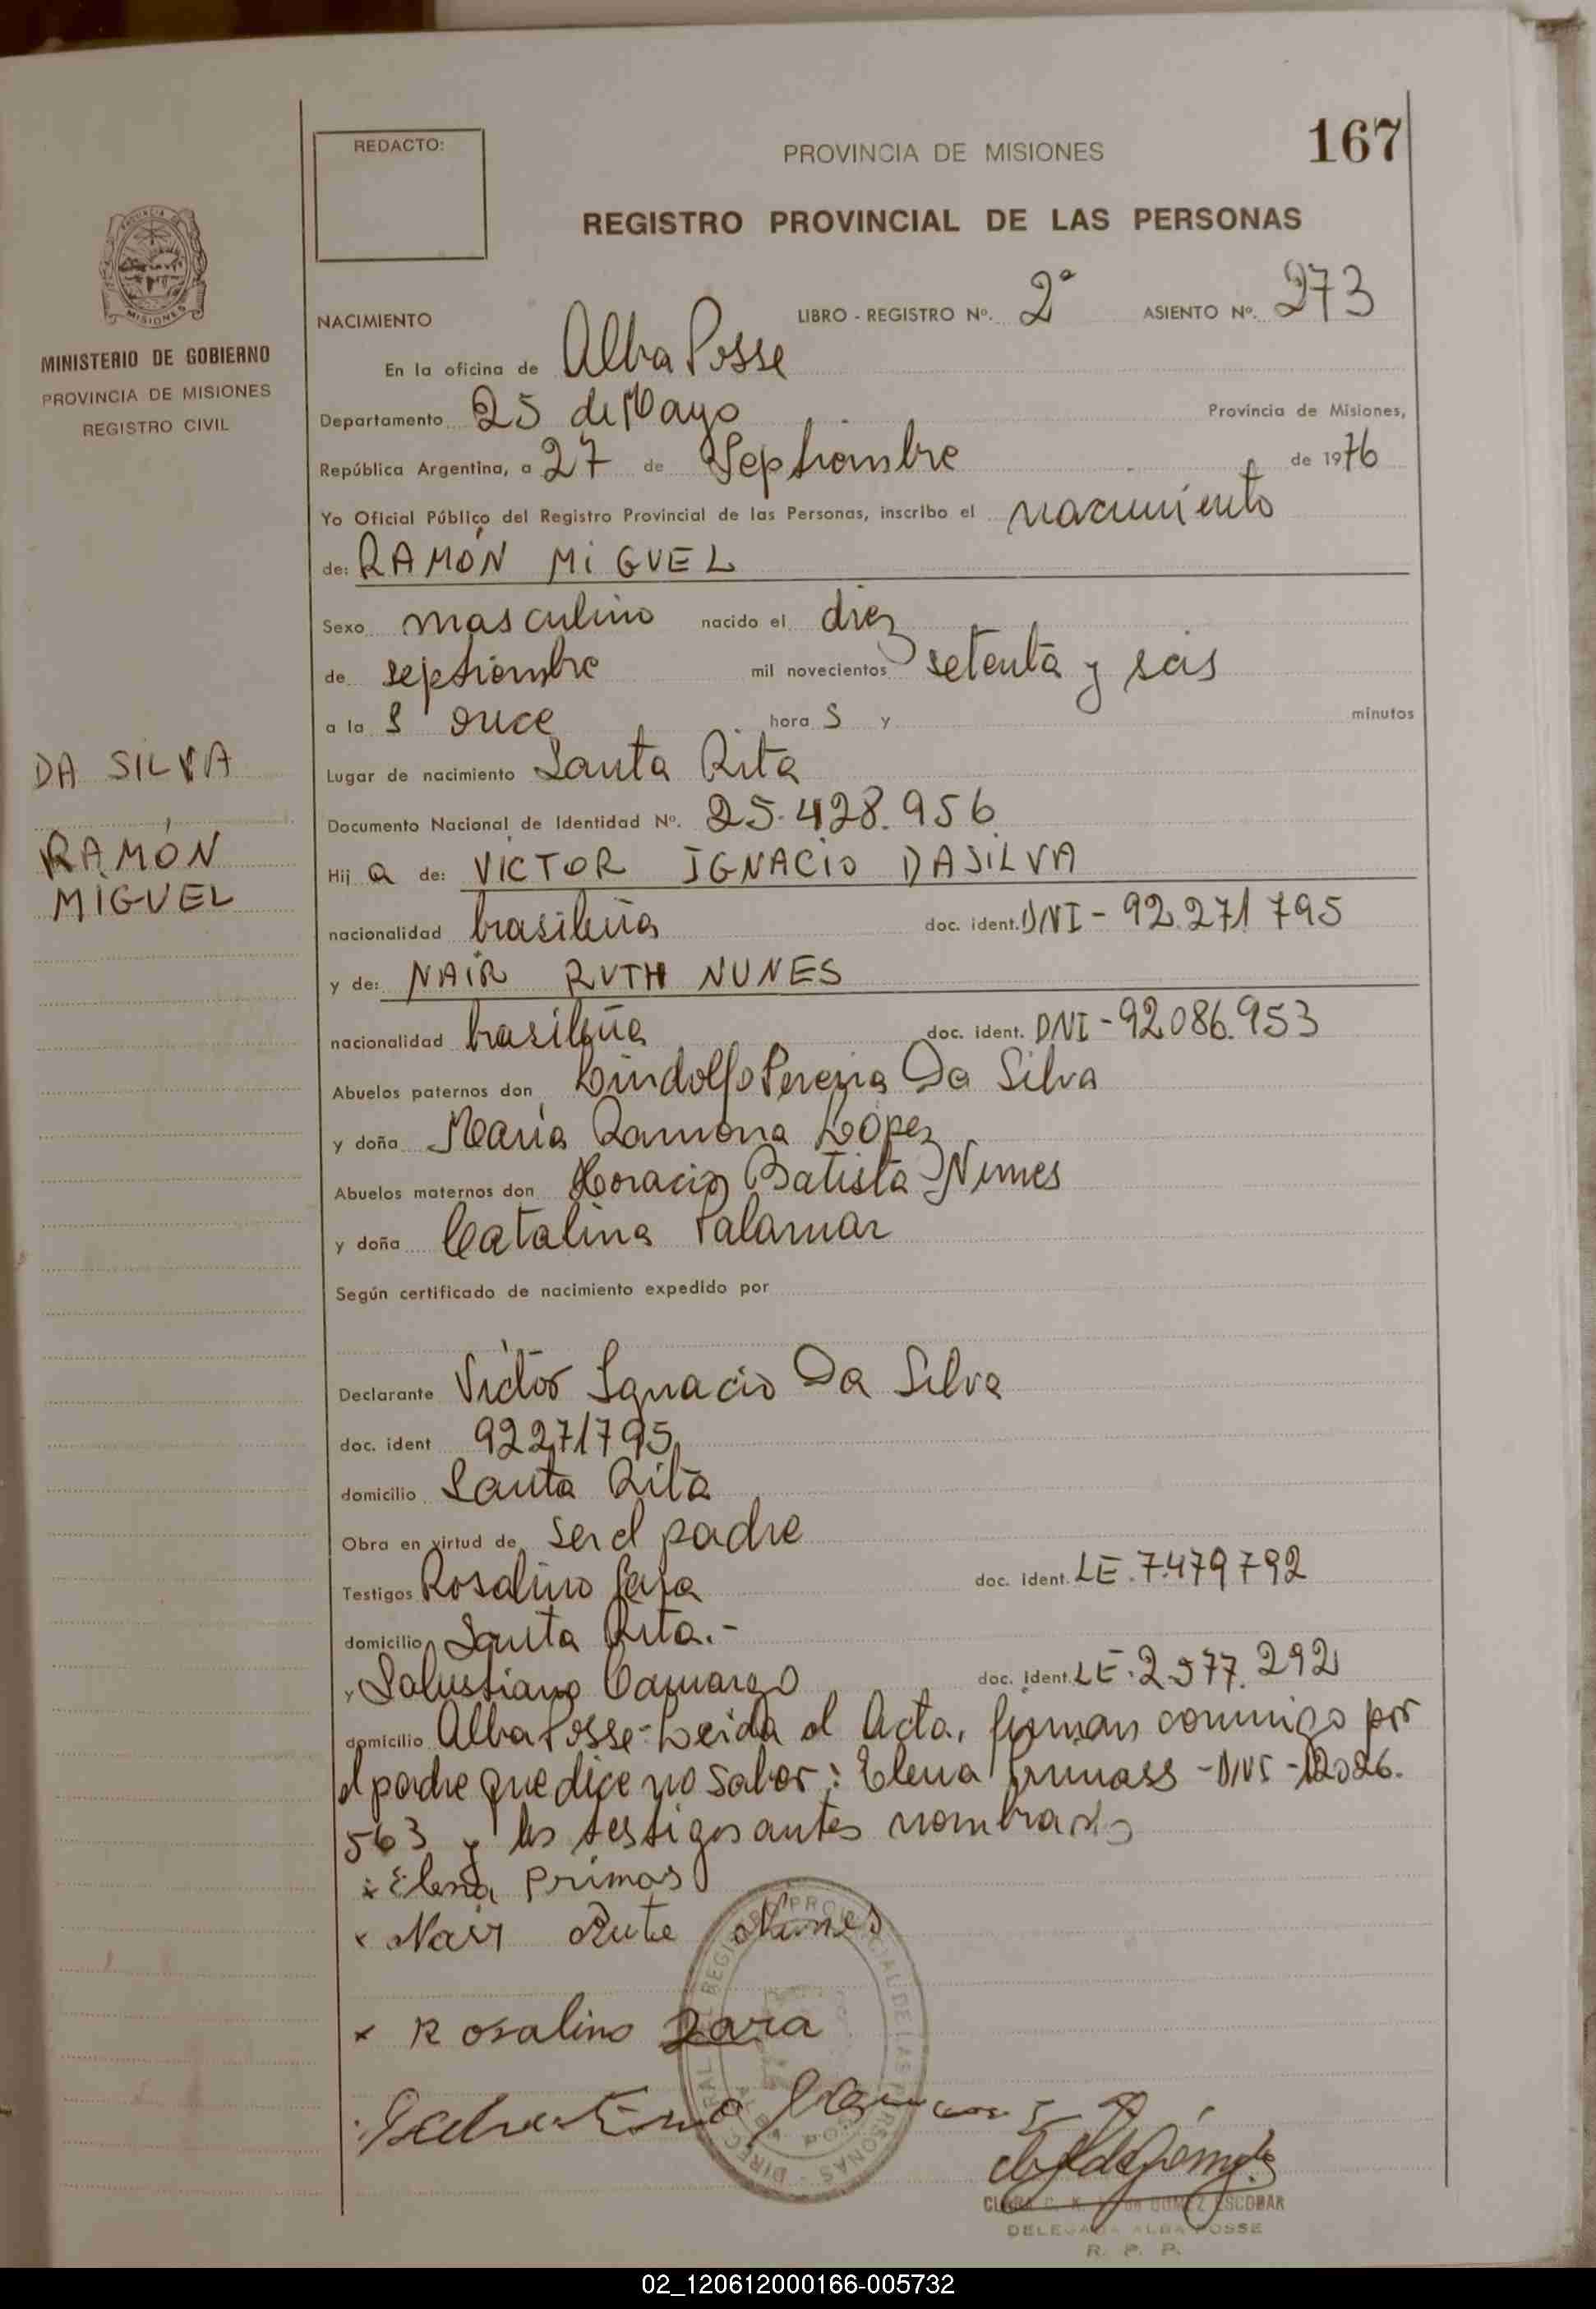 167
REDACTO:
PROVINCIA DE MISIONES
REGISTRO PROVINCIAL DE LAS PERSONAS
MISIONES
MINISTERIO DE GOBIERNO
PROVINCIA DE MISIONES
REGISTRO CIVIL
NACIMIENTO LIBRO - REGISTRO Nº. 2ª ASIENTO Nº. 273
En la oficina de Alba Posse
Departamento 25 de Mayo Provincia de Misiones,
República Argentina, a 27 de Septiembre de 1976
Yo Oficial Público del Registro Provincial de las Personas, inscribo el nacimiento
de: RAMÓN MIGUEL
Sexo masculino nacido el diez
de septiembre mil novecientos setenta y seis
a la s once hora s y minutos
DA SILVA
RAMÓN
MIGUEL
Lugar de nacimiento Santa Rita
Documento Nacional de Identidad Nº. 25.428.956
Hij a de: VICTOR IGNACIO DASILVA
nacionalidad brasileña doc. ident. DNI - 92.271 795
y de: NAIR RUTH NUNES
nacionalidad brasileña doc. ident. DNI - 92.086.953
Abuelos paternos don Lindolfo Pereira Da Silva
y doña María Ramona López
Abuelos maternos don Horacio Batista Nunes
y doña Catalina Palamar
Según certificado de nacimiento expedido por
Declarante Victor Ignacio Da Silva
doc. ident 92271795
domicilio Santa Rita
Obra en virtud de ser el padre
Testigos Rosalino doc. ident. LE. 7.479792
domicilio Santa Rita.-
y Salustiano Camargo doc. ident. LE. 2577.292
domicilio Alba Posse - Leida el Acta, firman conmigo por
el padre que dice no saber: Elena - DNI - 12026.
563 y los testigos antes nombrados
x Elena Primas
x Nair Rute Nunes
x Rosalino Zara
DE GOMEZ ESCOBAR
DELEGADA ALBA POSSE
R. P. P.
02_120612000166-005732